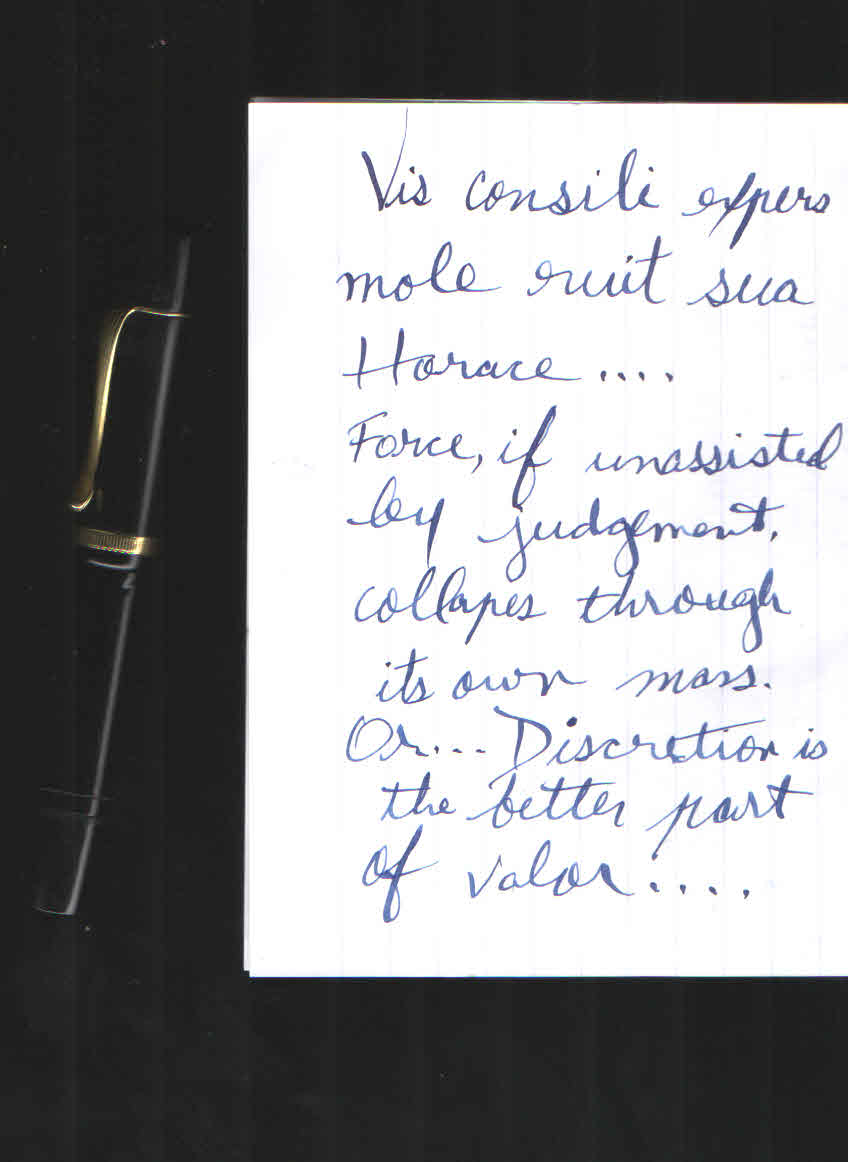 Vis consili expers
mole ruit sua
Horace ....
Force, if unassisted
by judgement,
collapes through
its own mass.
Or... Discretion is
the better part
of valor....